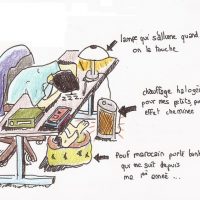 lampe qui s'allume quand
on la touche
chauffage halogène
pour mes petits pieds
effet cheminée
Pouf marocain porte bonheur
qui me suit depuis
ma 1ère année ...